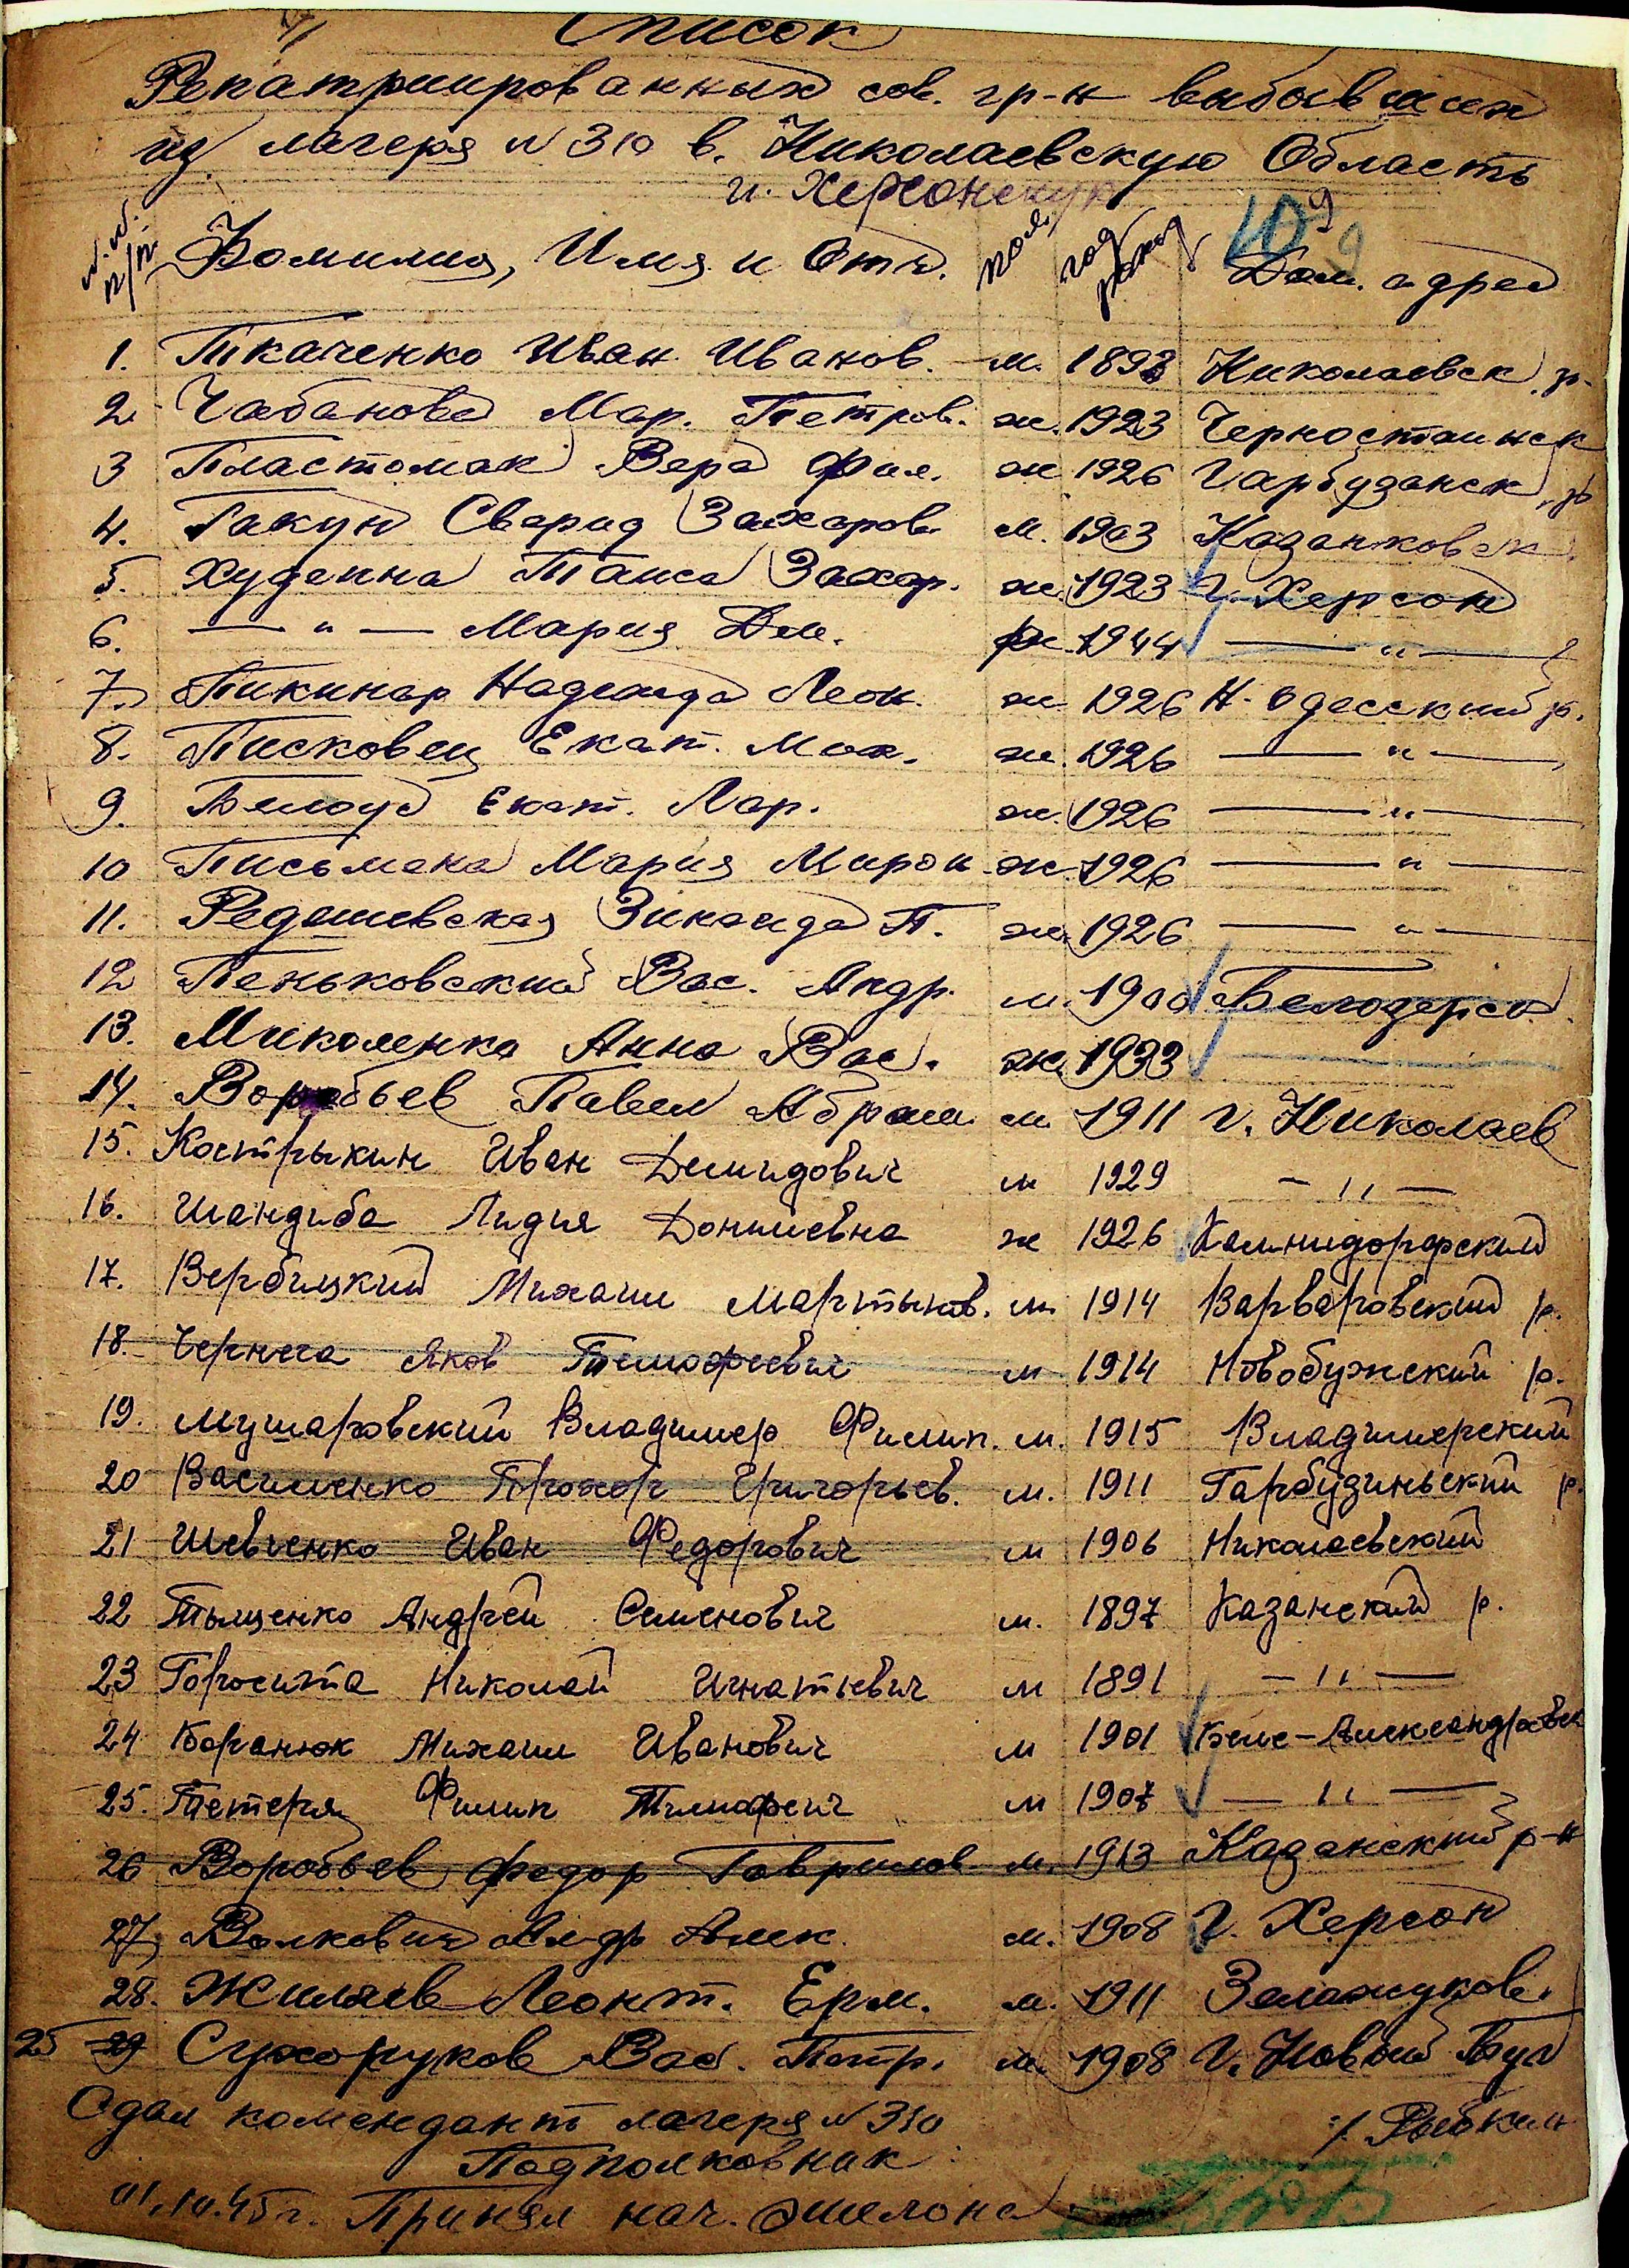 Список
Репатриированных сов. гр-н выбывших
из лагеря N 310 в. Николаевскую Область
и. Херсонскую
N.N. п/п Фамилия, Имя и Отч. пол год рожд Дом. адрес
1. Ткаченко Иван Иванов. м. 1893 Николаевск. р.
2 Чабанова Мар. Петров. ж. 1923
3 Пластомак Вера Фил. ж 1926 Гарбузанск р
4. Гакун Захаров м. 1903 Казанковск.
5. Худенна Таиса Захар. ж. 1923 г. Херсон
6. — " — Мария Дм. ж. 1944 — " —
7. Пикинар Надежда Леон. ж 1926 Н-Одесский р.
8. Писковец Екат. Мак. ж. 1926 — " —
9. Екат. Лар. ж. 1926 — " —
10 Письмака Мария Мирон. ж. 1926 — " —
11. Редашевская Зинаида П. ж. 1926 — " —
12 Пеньковский Вас. Андр. м. 1900 Белозерск.
13. Миколенко Анна Вас. ж. 1933 —
14. Воробьев Павел Абрам. м. 1911 г. Николаев
15. Кострыкин Иван Демидович м 1929 — " —
16. Шандиба Лидия Донииевна ж 1926 Калнидорфский
17. Вербицкий Михаил Мартынов. м. 1914 Варваровский р.
18. Чернега Яков Тимофеевич м 1914 Новобужский р.
19. Мушаровский Владимер Филип. м. 1915 Владимерский
20 Василенко Прохор Григорьев. м. 1911 Гарбузиньский р.
21 Шевченко Иван Федорович м 1906 Николаевский
22 Тыщенко Андрей Семенович м. 1897 Казанский р.
23 Горосита Николай Игнатьевич м 1891 — " —
24 Боранюк Михаил Иванович м 1901 Беле-Александровск
25. Тетеря Филип Тимофеич м 1907 — " —
26 Воробьев Федор Гаврилов. м. 1913 Казанский р-н
27. Волкович Ал-др Алек. м. 1908 г. Херсон
28. Жиляев Леонт. Ерм. м. 1911
25 29 Сухоруков Вас. Петр. м. 1908 г. Новый Буг
Сдал комендант лагеря N 310
Подполковник /. Рыбкин
01.10.45 г. Принял нач. эшелона